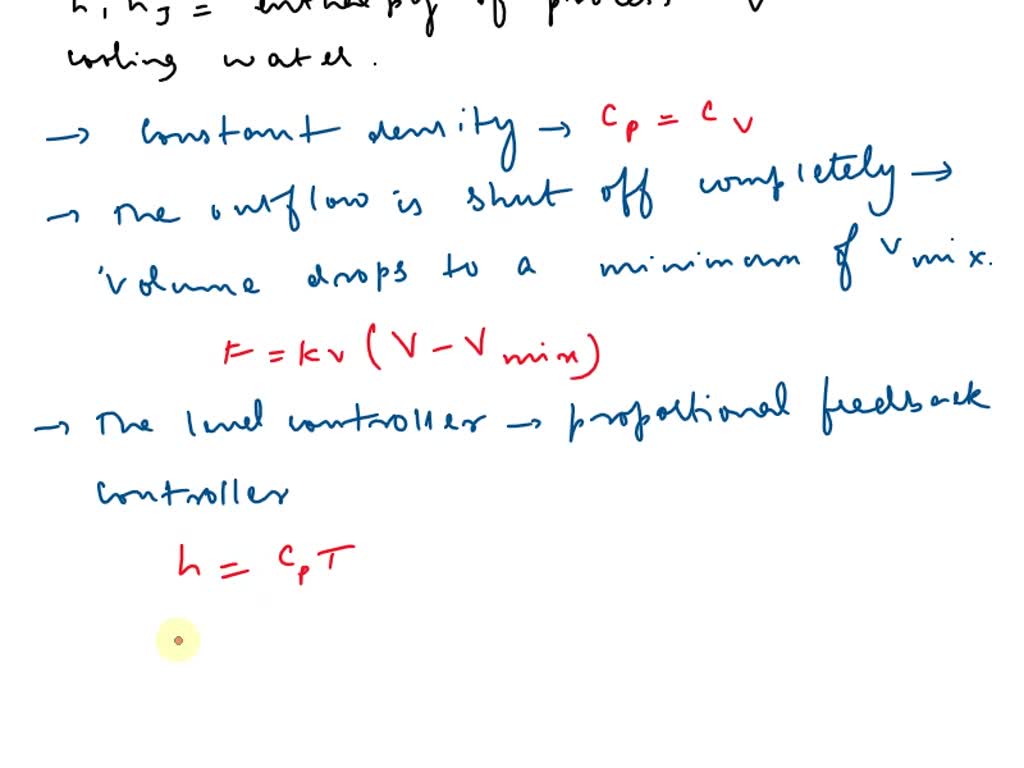 h, hJ = enthalpy of process &
cooling water.
→ constant density → Cp = Cv
→ The outflow is shut off completely →
'volume drops to a minimum of Vmix.
F = kv (V - Vmin)
→ The level controller → proportional feedback
controller
h = CpT